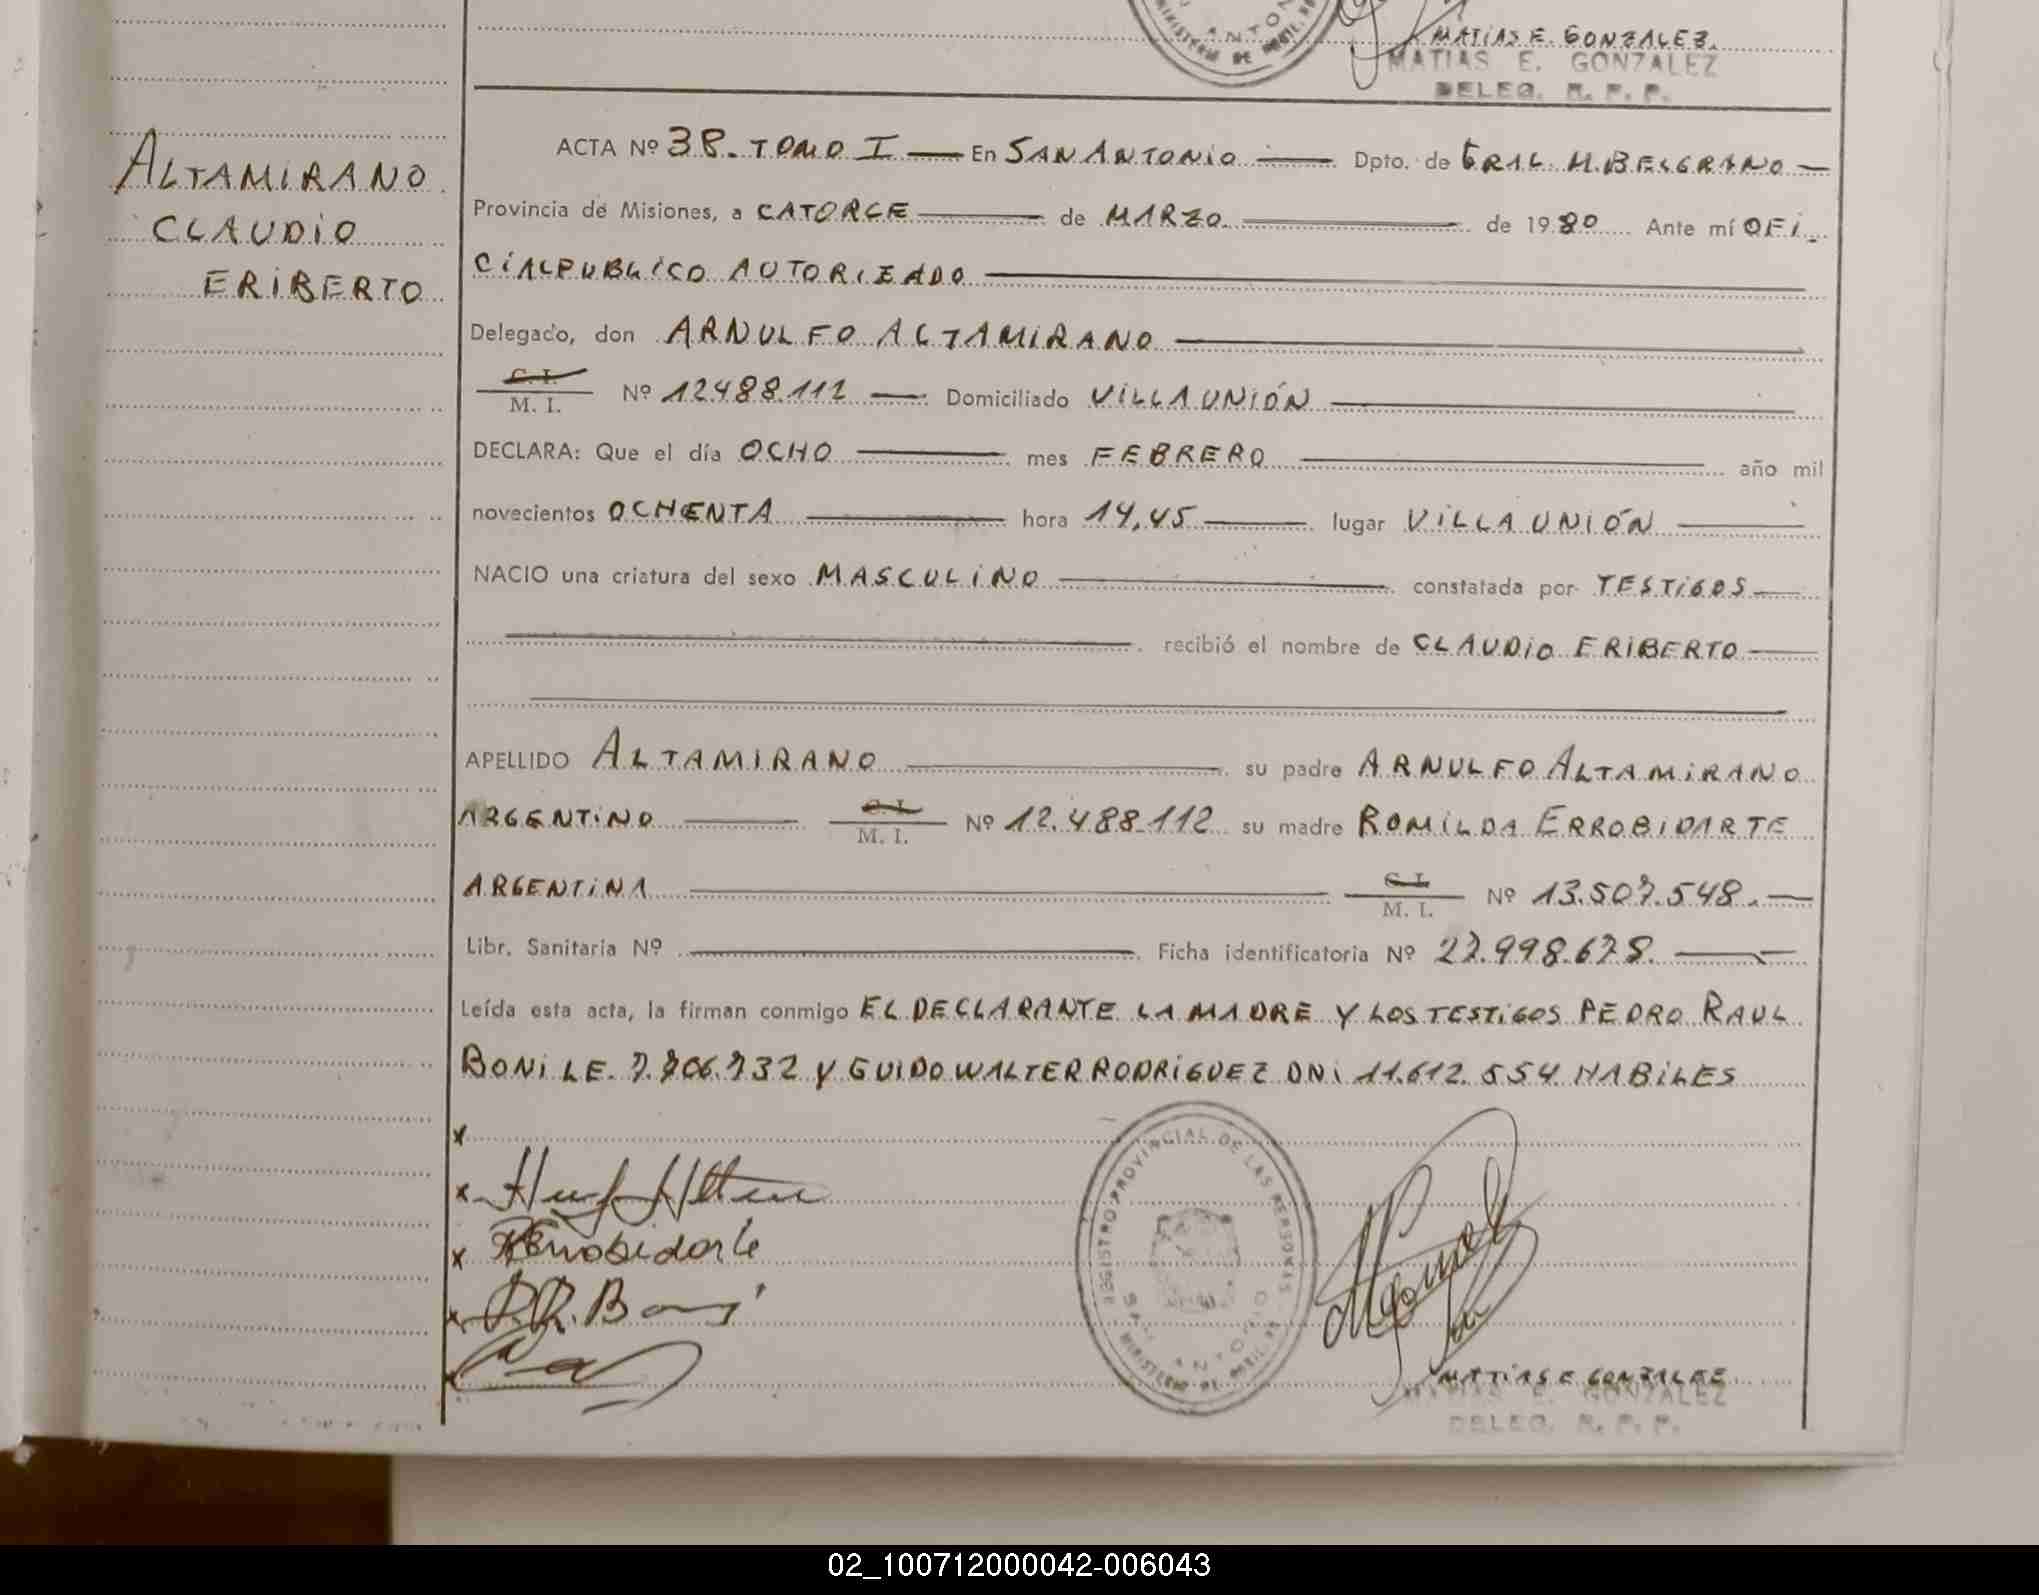 MATIAS E. GONZALEZ.
MATIAS E. GONZALEZ
DELEG. R. P. P.
ALTAMIRANO
CLAUDIO
ERIBERTO
ACTA Nº 38. TOMO I — En SAN ANTONIO — Dpto. de GRAL M. BELGRANO —
Provincia de Misiones, a CATORCE — de MARZO — de 1980 Ante mí OFI-
CIAL PUBLICO AUTORIZADO —
Delegado, don ARNULFO ALTAMIRANO —
C. I.
M. I. Nº 12488.112 — Domiciliado VILLA UNIÓN —
DECLARA: Que el día OCHO — mes FEBRERO — año mil
novecientos OCHENTA — hora 14,45 — lugar VILLA UNIÓN —
NACIO una criatura del sexo MASCULINO — constatada por TESTIGOS —
— recibió el nombre de CLAUDIO ERIBERTO —
APELLIDO ALTAMIRANO — su padre ARNULFO ALTAMIRANO
ARGENTINO — C. I. M. I. Nº 12.488.112 su madre ROMILDA ERROBIDARTE
ARGENTINA — C. I. M. I. Nº 13.507.548. —
Libr. Sanitaria Nº — Ficha identificatoria Nº 27.998.678. —
Leída esta acta, la firman conmigo EL DECLARANTE LA MADRE Y LOS TESTIGOS PEDRO RAUL
BONI LE. Y GUIDO WALTER RODRIGUEZ DNI 11.612.554 HABILES
x
x
x Errobidarte
x P.R. Boni
REGISTRO PROVINCIAL DE LAS PERSONAS
SAN ANTONIO
MATIAS E GONZALEZ.
MATIAS E. GONZALEZ
DELEG. R. P. P.
02_100712000042-006043